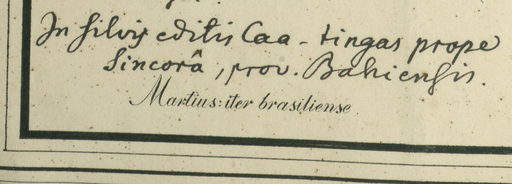 In silvis editis Caa-tingas prope
Sincorâ, prov. Bahiensis.
Martius: iter brasiliense.